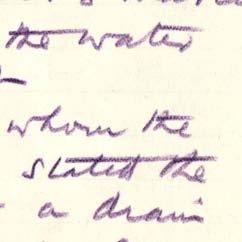 the water
whom the
stated the
a drain